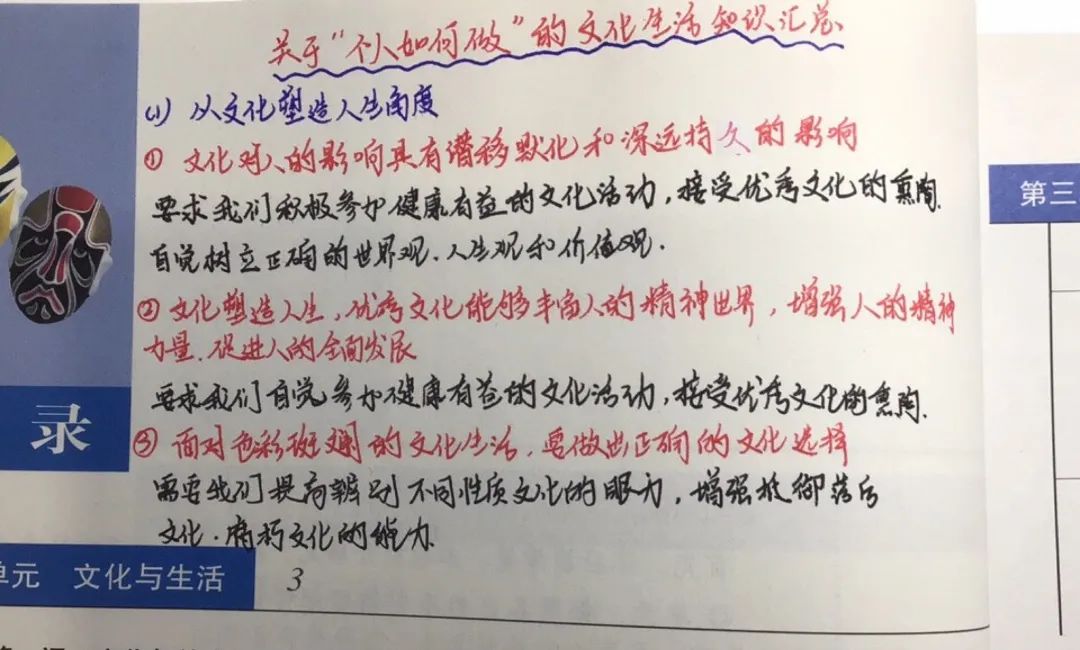 关于“个人如何做”的文化生活知识汇总
(1) 从文化塑造人生角度
① 文化对人的影响具有潜移默化和深远持久的影响
要求我们积极参加健康有益的文化活动,接受优秀文化的熏陶.
自觉树立正确的世界观.人生观和价值观.
② 文化塑造人生,优秀文化能够丰富人的精神世界,增强人的精神
力量.促进人的全面发展
要求我们自觉参加健康有益的文化活动,接受优秀文化的熏陶.
③ 面对色彩斑斓的文化生活,要做出正确的文化选择
需要我们提高辨别不同性质文化的眼力,增强抵御落后
文化.腐朽文化的能力.
录
第三
单元 文化与生活
3